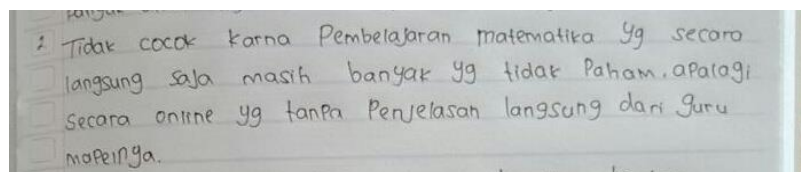 2 Tidak cocok karna Pembelajaran matematika yg secara
langsung saja masih banyak yg tidak Paham. apalagi
secara online yg tanpa Penjelasan langsung dari guru
mapelnya.